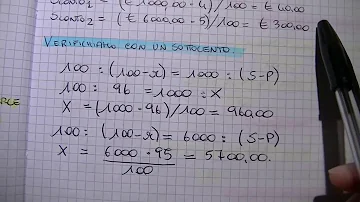 SCONTO₁ = (€ 1000,00 · 4) / 100 = € 40,00
SCONTO₂ = (€ 6000,00 · 5) / 100 = € 300,00
VERIFICHIAMO CON UN SOTTOCENTO:
100 : (100-r) = 1000 : (S-P)
100 : 96 = 1000 : X
X = (1000 · 96) / 100 = 960,00
100 : (100-r) = 6000 : (S-P)
X = 6000 · 95 / 100 = 5700,00.